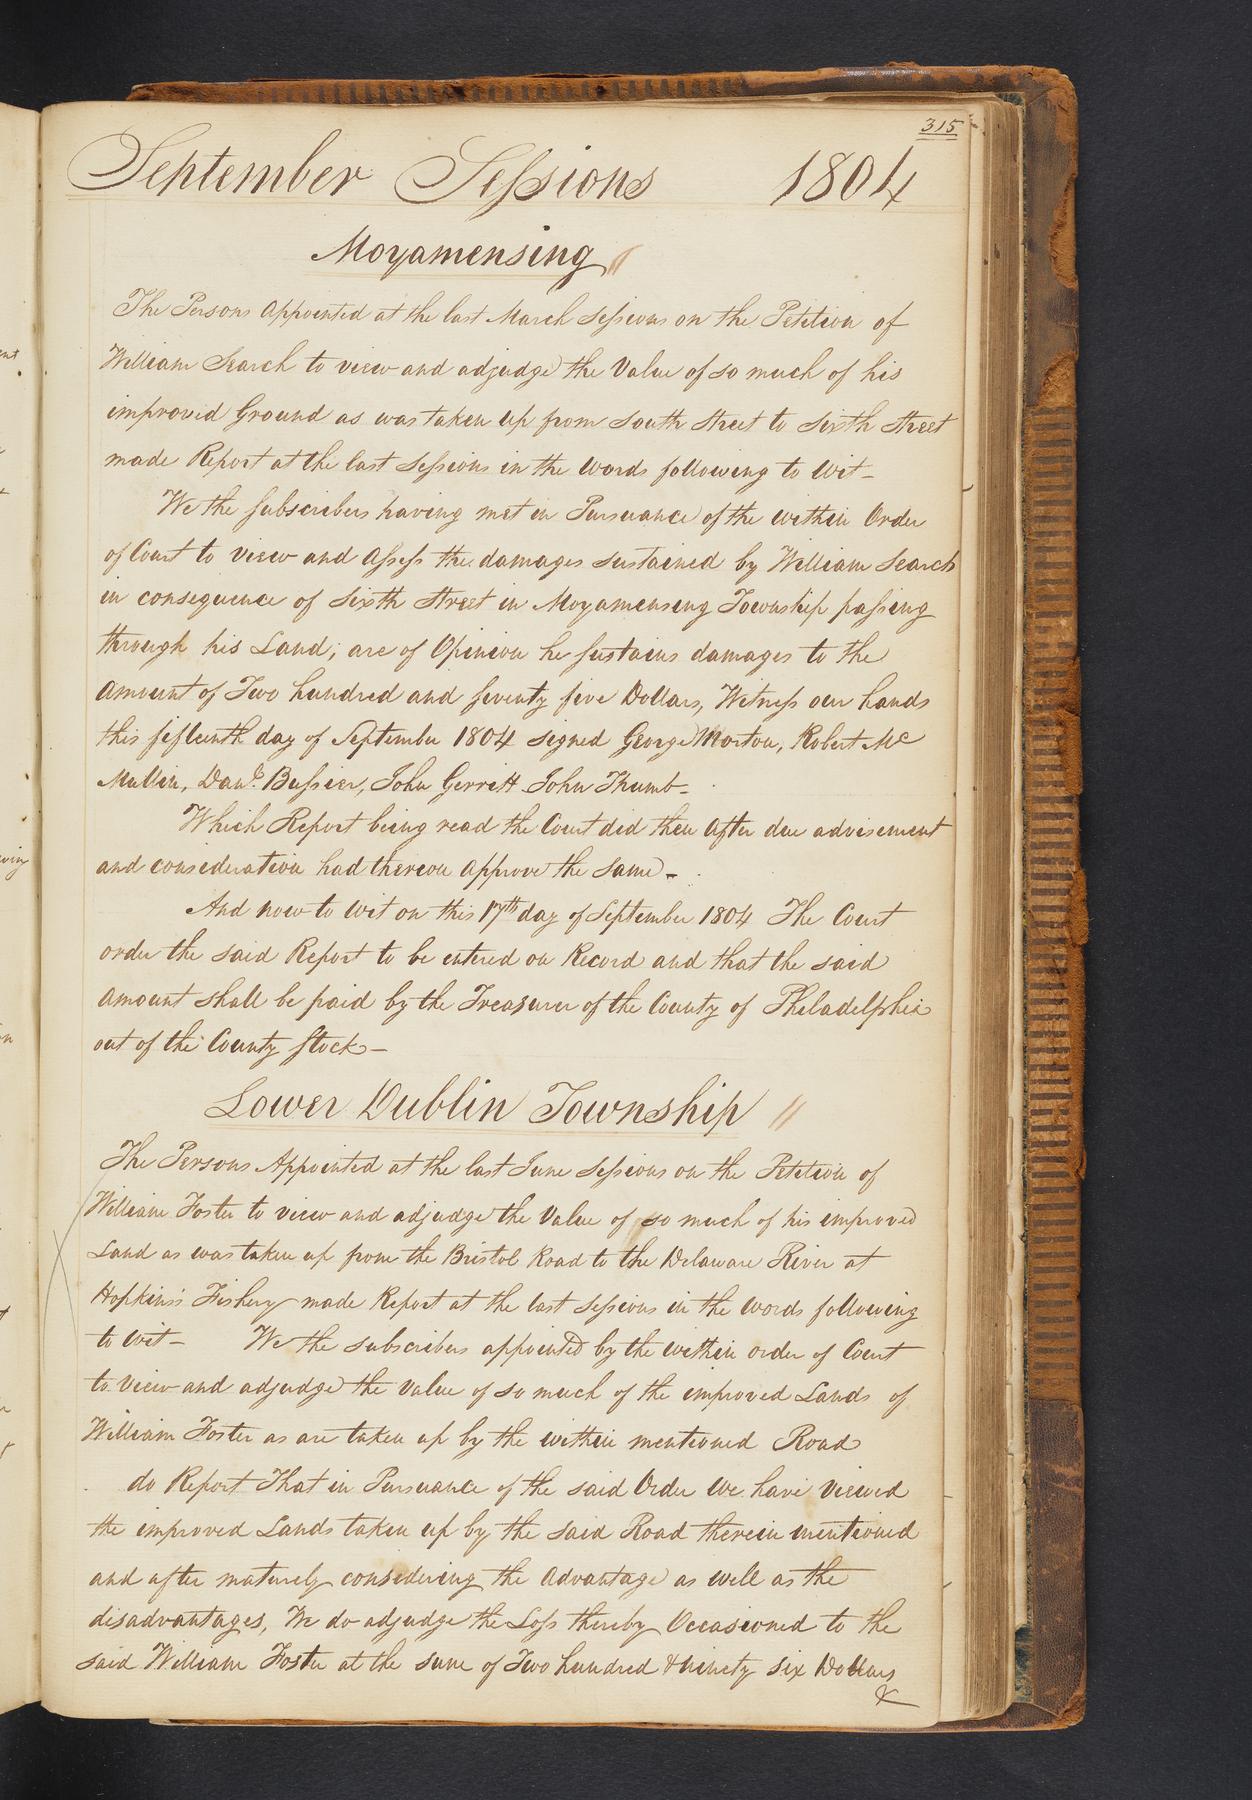 315
September Sessions 1804
Moyamensing
The Persons Appointed at the last March Sessions on the Petition of
William Search to view and adjudge the Value of so much of his
improved Ground as was taken up from South Street to Sixth Street
made Report at the last Sessions in the Words following to Wit —
We the Subscribers having met in Pursuance of the within Order
of Court to view and Assess the damages sustained by William Search
in consequence of Sixth Street in Moyamensing Township passing
through his Land; are of Opinion he sustains damages to the
Amount of Two hundred and seventy five Dollars, Witness our hands
this fifteenth day of September 1804 signed George Morton, Robert Mc
Mullin, Danl. Bussier, John Gerritt John Thumb —
Which Report being read the Court did then After due advisement
and consideration had thereon Approve the same —
And now to Wit on this 17th day of September 1804 The Court
order the said Report to be entered on Record and that the said
Amount shall be paid by the Treasurer of the County of Philadelphia
out of the County Stock —
Lower Dublin Township
The Persons Appointed at the last June Sessions on the Petition of
William Foster to view and adjudge the Value of so much of his improved
Land as was taken up from the Bristol Road to the Delaware River at
Hopkins's Fishery made Report at the last Sessions in the Words following
to Wit — We the subscribers appointed by the within order of Court
to View and adjudge the Value of so much of the improved Lands of
William Foster as are taken up by the within mentioned Road
do Report That in Pursuance of the said Order We have Viewed
the improved Lands taken up by the said Road therein mentioned
and after maturely considering the Advantage as well as the
disadvantages, We do adjudge the Loss thereby Occasioned to the
said William Foster at the sum of Two hundred & ninety six Dollars
&